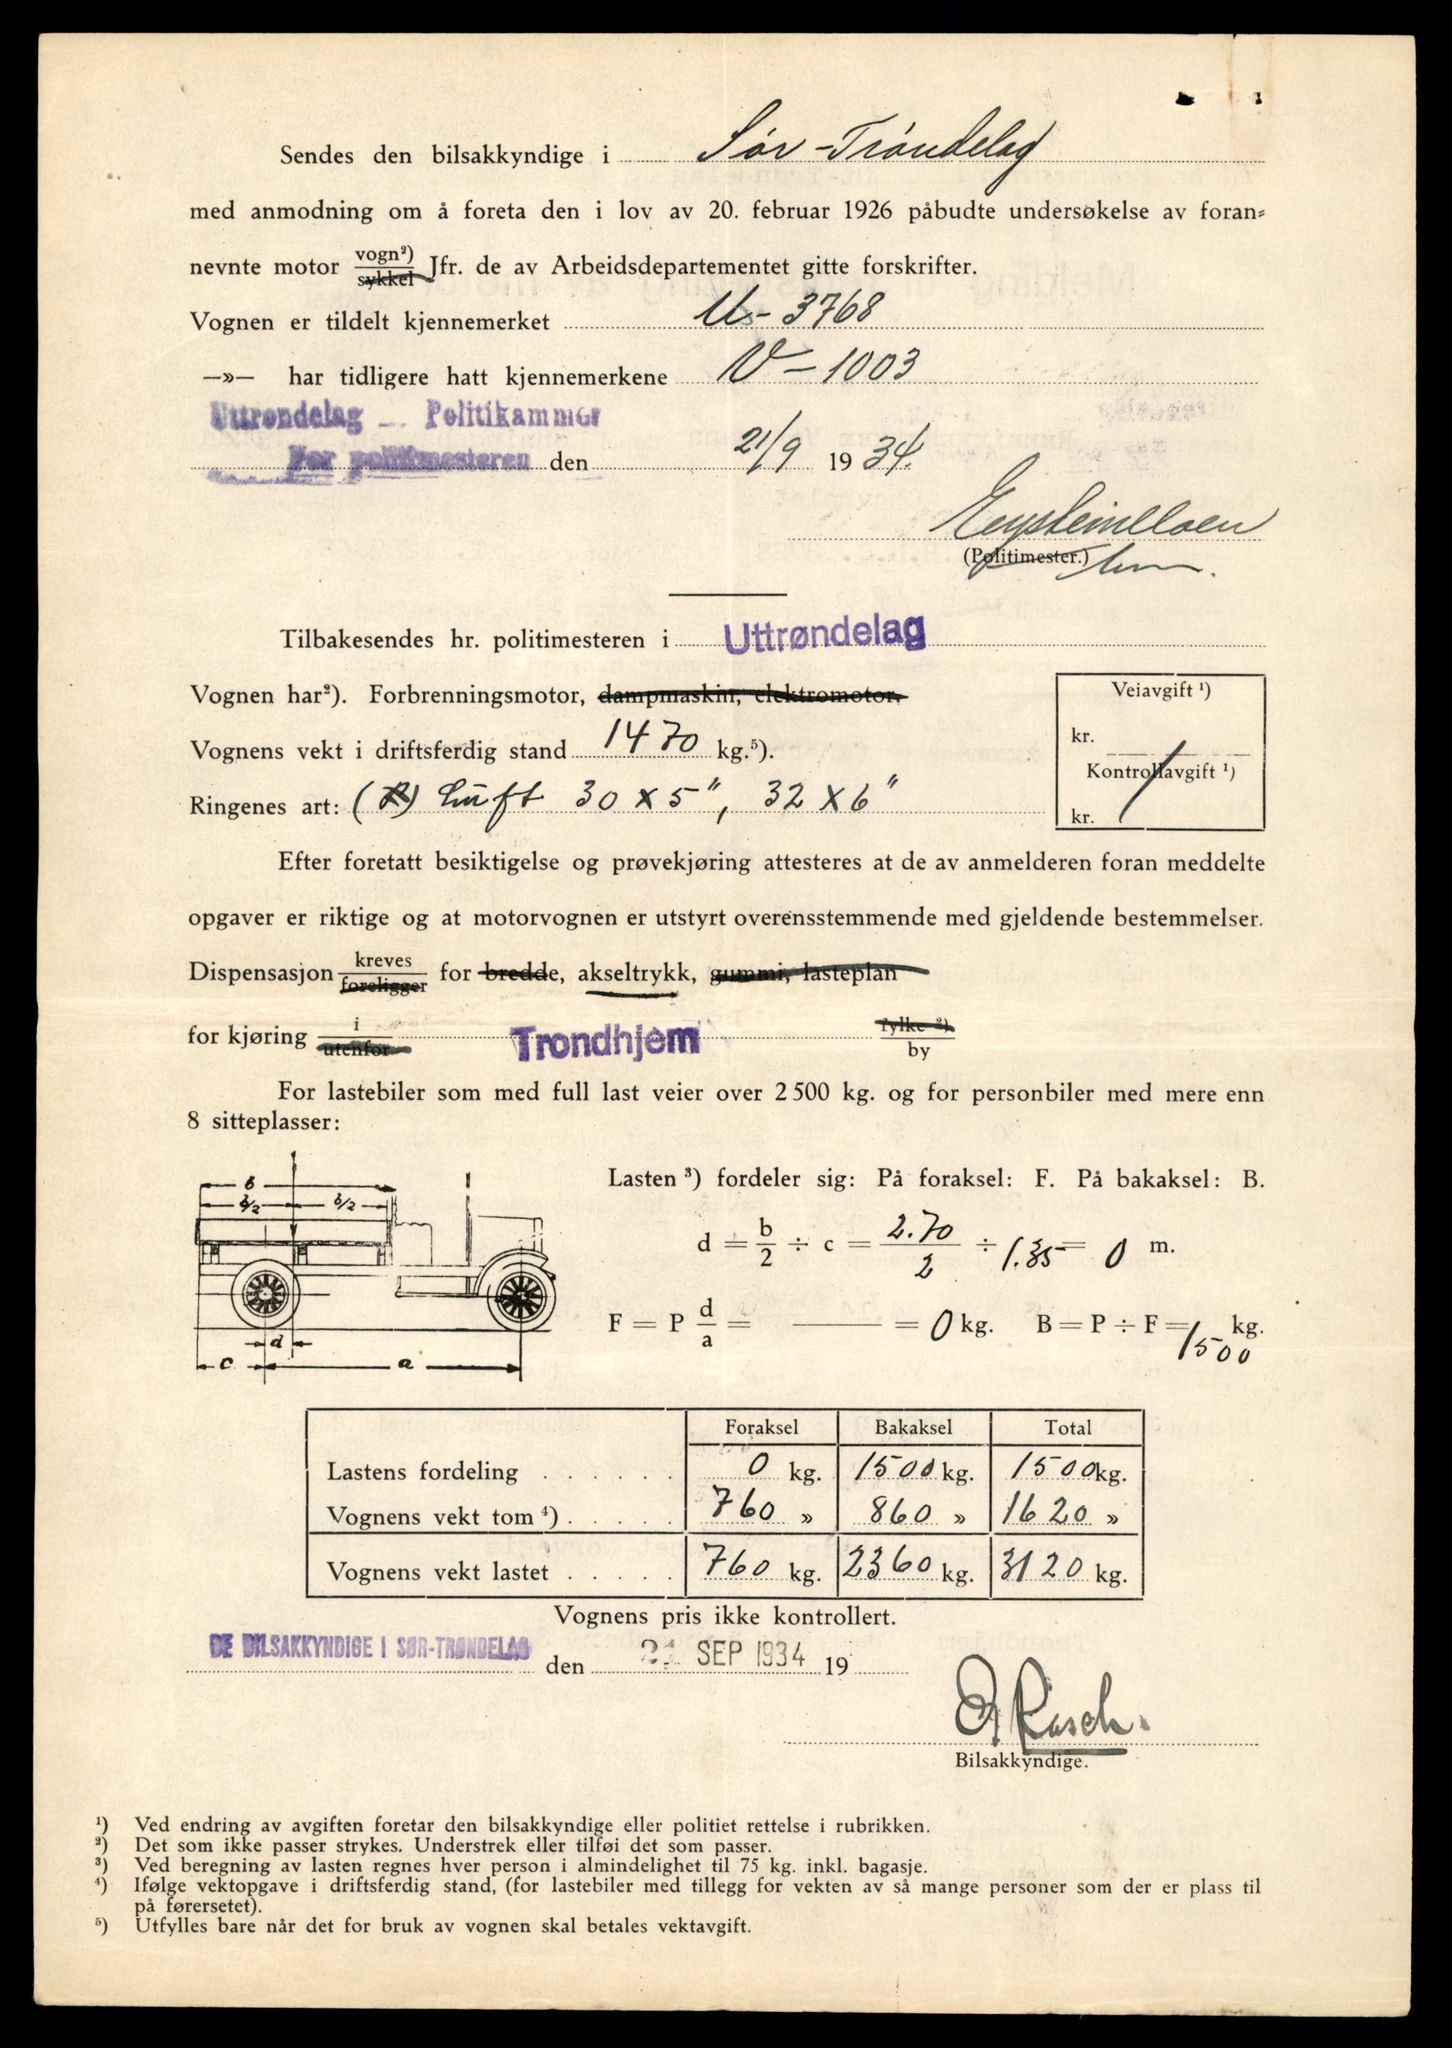 Sendes den bilsakkyndige i Sør-Trøndelag
med anmodning om å foreta den i lov av 20. februar 1926 påbudte undersøkelse av foran-
nevnte motor vogn²) / sykkel Jfr. de av Arbeidsdepartementet gitte forskrifter.
Vognen er tildelt kjennemerket U- 3768
—»— har tidligere hatt kjennemerkene V - 1003
Uttrøndelag Politikammer
For politimesteren den 21/9 1934.
(Politimester.)
Tilbakesendes hr. politimesteren i Uttrøndelag
Vognen har²). Forbrenningsmotor, dampmaskin, elektromotor.
Veiavgift ¹)
Vognens vekt i driftsferdig stand 1470 kg.⁵).
kr.
Kontrollavgift ¹)
Ringenes art: (R) Luft 30 x 5", 32 x 6"
kr.
Efter foretatt besiktigelse og prøvekjøring attesteres at de av anmelderen foran meddelte
opgaver er riktige og at motorvognen er utstyrt overensstemmende med gjeldende bestemmelser.
Dispensasjon kreves / foreligger for bredde, akseltrykk, gummi, lasteplan
for kjøring i / utenfor Trondhjem fylke ²) / by
For lastebiler som med full last veier over 2 500 kg. og for personbiler med mere enn
8 sitteplasser:
b
b/2 b/2
d
c a
Lasten ³) fordeler sig: På foraksel: F. På bakaksel: B.
d = b/2 ÷ c = 2.70/2 ÷ 1.35 = 0 m.
F = P d/a = —— = 0 kg. B = P ÷ F = 1500 kg.
Foraksel Bakaksel Total
Lastens fordeling . . . . . . 0 kg. 1500 kg. 1500 kg.
Vognens vekt tom ⁴) . . . . . 760 » 860 » 1620 »
Vognens vekt lastet . . . . . 760 kg. 2360 kg. 3120 kg.
Vognens pris ikke kontrollert.
DE BILSAKKYNDIGE I SØR-TRØNDELAG den 21 SEP 1934 19
Rasch.
Bilsakkyndige.
¹) Ved endring av avgiften foretar den bilsakkyndige eller politiet rettelse i rubrikken.
²) Det som ikke passer strykes. Understrek eller tilføi det som passer.
³) Ved beregning av lasten regnes hver person i almindelighet til 75 kg. inkl. bagasje.
⁴) Ifølge vektopgave i driftsferdig stand, (for lastebiler med tillegg for vekten av så mange personer som der er plass til
på førersetet).
⁵) Utfylles bare når det for bruk av vognen skal betales vektavgift.